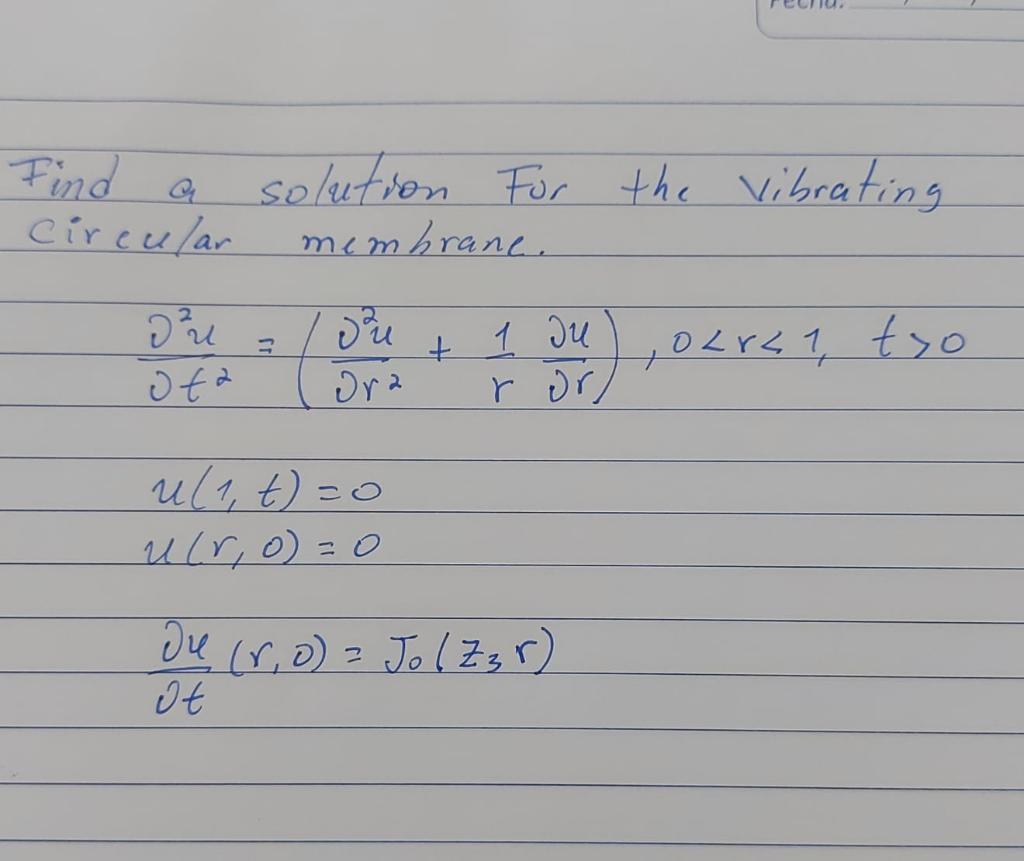 Find a solution For the vibrating
circular membrane.
∂²u/∂t² = (∂²u/∂r² + 1/r ∂u/∂r), 0<r<1, t>0
u(1, t) = 0
u(r, 0) = 0
∂u/∂t (r, 0) = J₀(z₃ r)